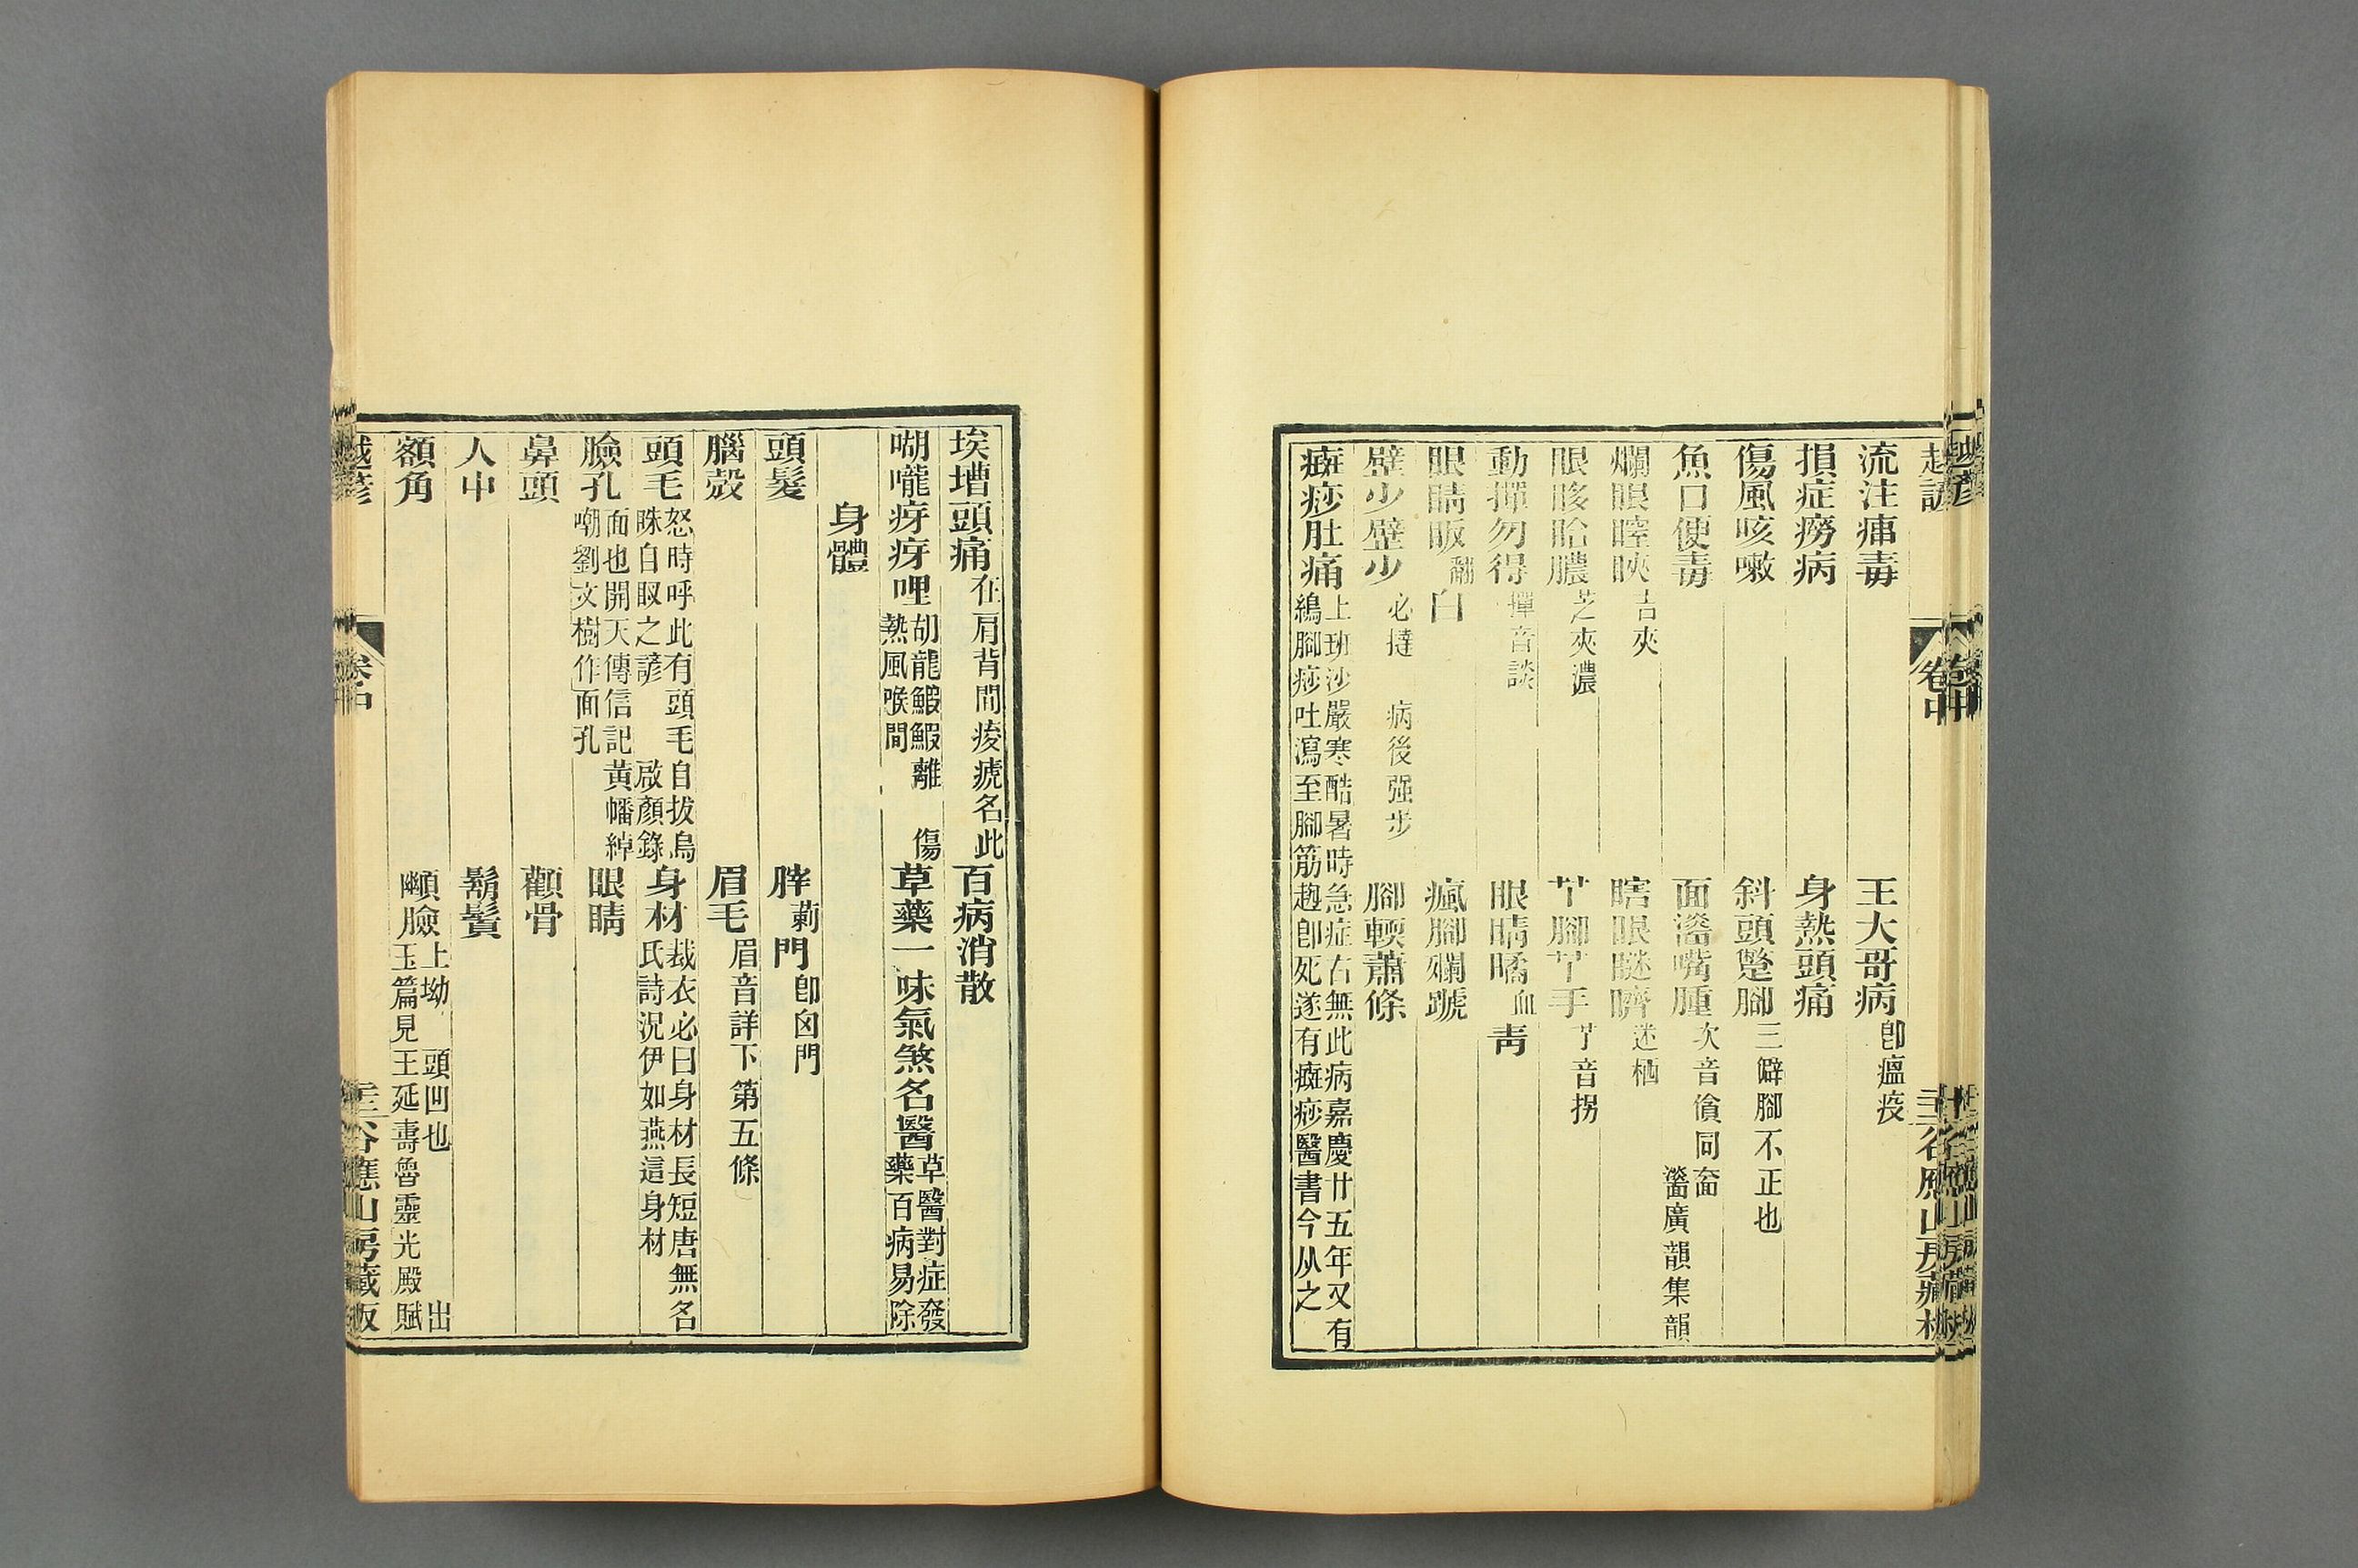 越諺
卷中
流注痺毒
王大哥病 卽瘟疫
損症癆病
身熱頭痛
傷風咳嗽
斜頭蹩腳 三僻腳不正也
魚口便毒
面 嘴腫 次音 同 廣韻集韻
爛眼睳眹 吉夾
瞎眼瞇 迷栖
眼眵眙膿 芝夾濃
腳 手 音拐
動撣勿得 撣音談
眼睛 血 靑
眼睛眅 翻 白
瘋腳爛蹏
壁少壁少 必撻 病後强步
腳輭蕭條
痧肚痛 上 沙嚴寒酷暑時急症古無此病嘉慶廿五年又有
腳痧吐瀉至腳筋 卽死遂有 痧醫書今从之
埃壋頭痛 在肩背間痠 名此
百病消散
嗍嚨疨疨哩 胡龍鰕鰕離 傷
熱風喉間
草藥一味氣煞名醫 草醫對症發
藥百病易除
身體
頭髮
門 卽囟門
腦殼
眉毛 眉音詳下第五條
頭毛 怒時呼此有頭毛自拔烏
眜自 之諺 啟顏錄
身材 裁衣必曰身材長短唐無名
氏詩況伊如燕這身材
臉孔 面也開天傳信記黃幡綽
嘲劉文樹作面孔
眼睛
鼻頭
顴骨
人中
鬍鬢
額角
臉 上坳 頭凹也 出
玉篇見王延壽魯靈光殿賦
越諺
卷中
谷應山房藏板